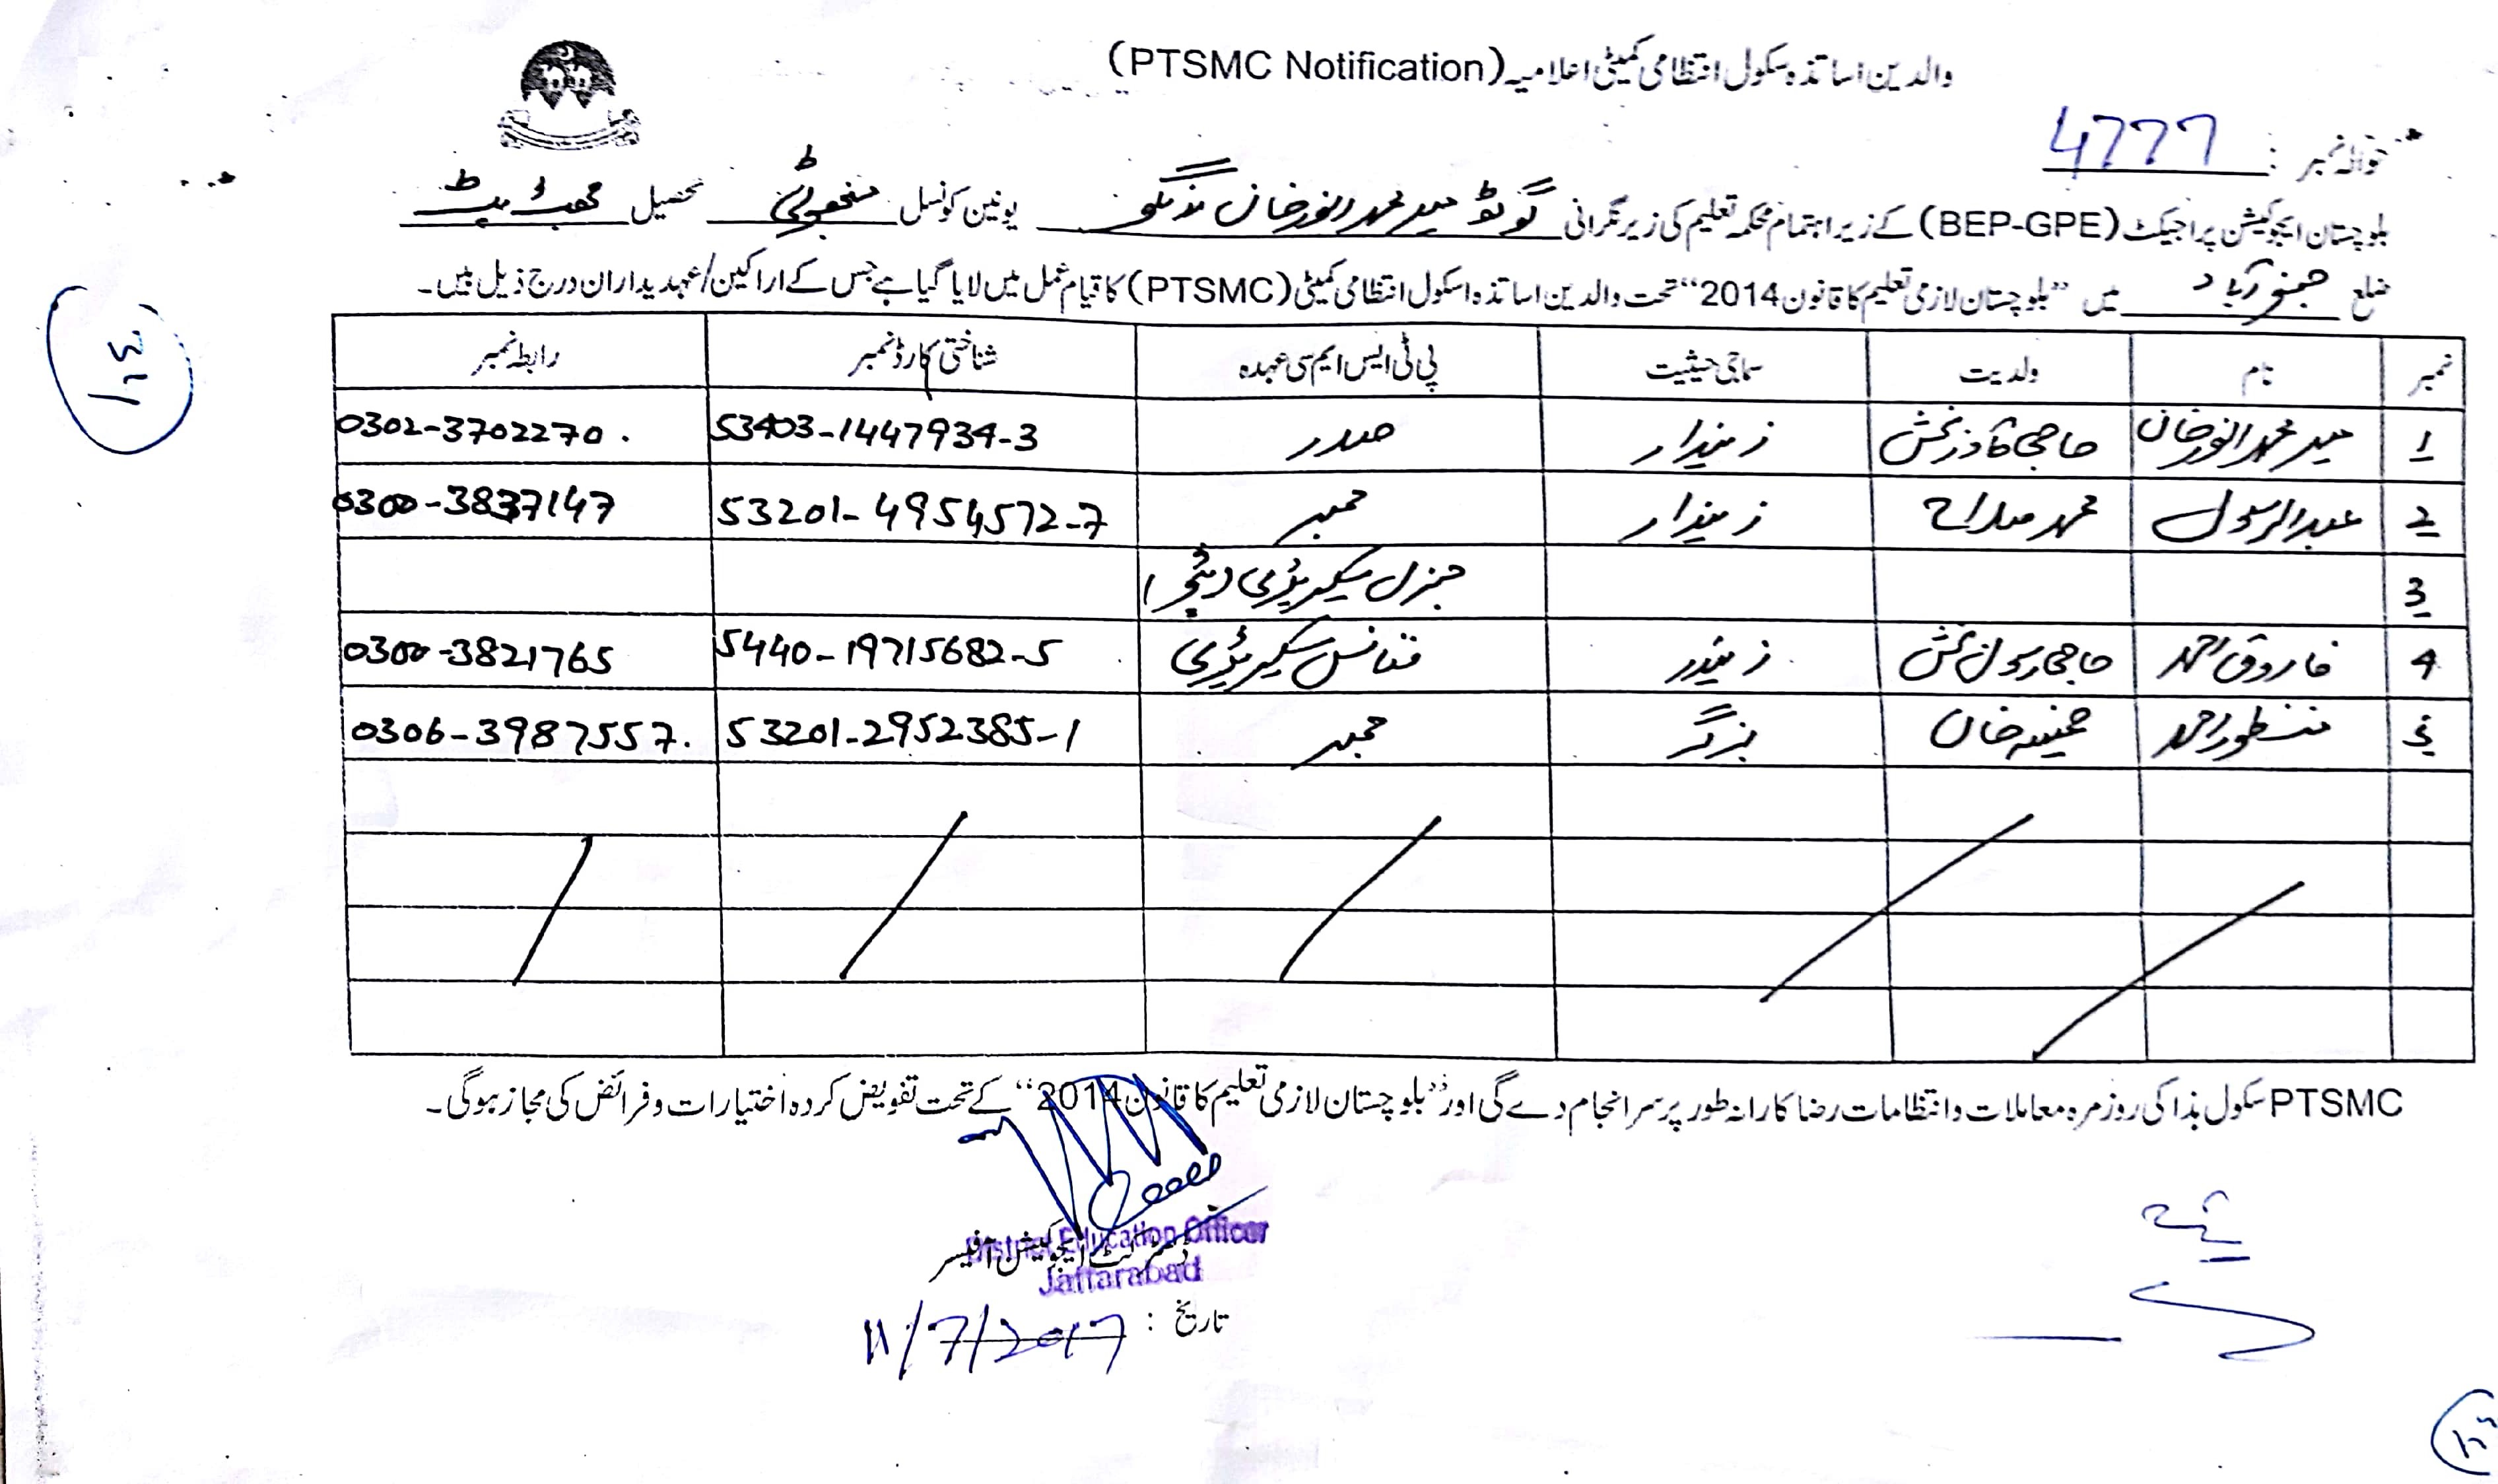 والدین اساتذہ سکول انتظامی کمیٹی اعلامیہ (PTSMC Notification)
حوالہ نمبر : 4777
بلوچستان ایجوکیشن پراجیکٹ (BEP-GPE) کے زیر اہتمام محکمہ تعلیم کی زیر نگرانی گوٹھ میر محمد انور خان یونین کونسل تحصیل
ضلع جعفر آباد میں ”بلوچستان لازمی تعلیم کا قانون 2014“ تحت والدین اساتذہ اسکول انتظامی کمیٹی (PTSMC) کا قیام عمل میں لایا گیا ہے جس کے اراکین/عہدیداران درج ذیل ہیں۔
نمبر نام ولدیت سماجی حیثیت پی ٹی ایس ایم سی عہدہ شناختی کارڈ نمبر رابطہ نمبر
1 میر محمد انور خان حاجی قادر بخش زمیندار صدر 53403-1447934-3 0302-3702270
2 عبدالرسول محمد صلاح زمیندار ممبر 53201-4954572-7 0300-3837147
3 جنرل سیکریٹری (ٹیچر)
4 فاروق احمد حاجی رسول بخش زمیندر فنانس سیکریٹری 5440-19715682-5 0300-3821765
5 منظور احمد خان بزگر ممبر 53201-2952385-1 0306-3987557
PTSMC سکول ہذا کی روزمرہ معاملات و انتظامات رضا کارانہ طور پر سرانجام دے گی اور ”بلوچستان لازمی تعلیم کا قانون 2014“ کے تحت تفویض کردہ اختیارات و فرائض کی مجاز ہوگی۔
ڈسٹرکٹ ایجوکیشن آفیسر
District Education Officer
Jaffarabad
تاریخ : 11/7/2017